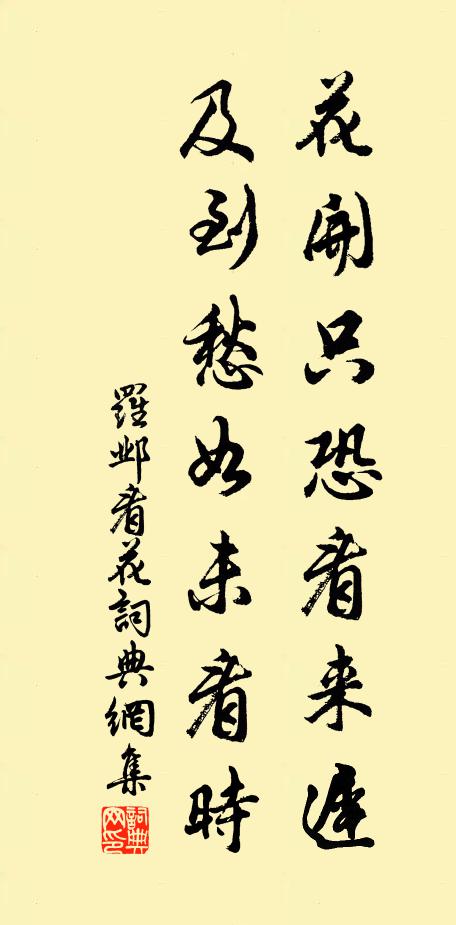 花開只恐看來遲
及到愁如未看時
羅鄴看花詞典網集
詞典網印